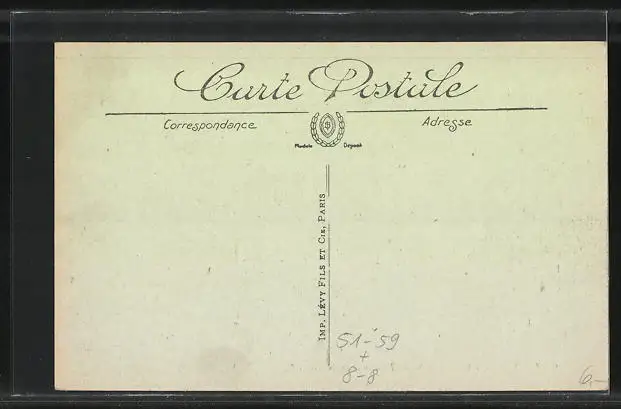 Carte Postale
Correspondance
Adresse
Modèle Déposé
IMP. LÉVY FILS ET CIE, PARIS
51-59
+
8-8
6,-